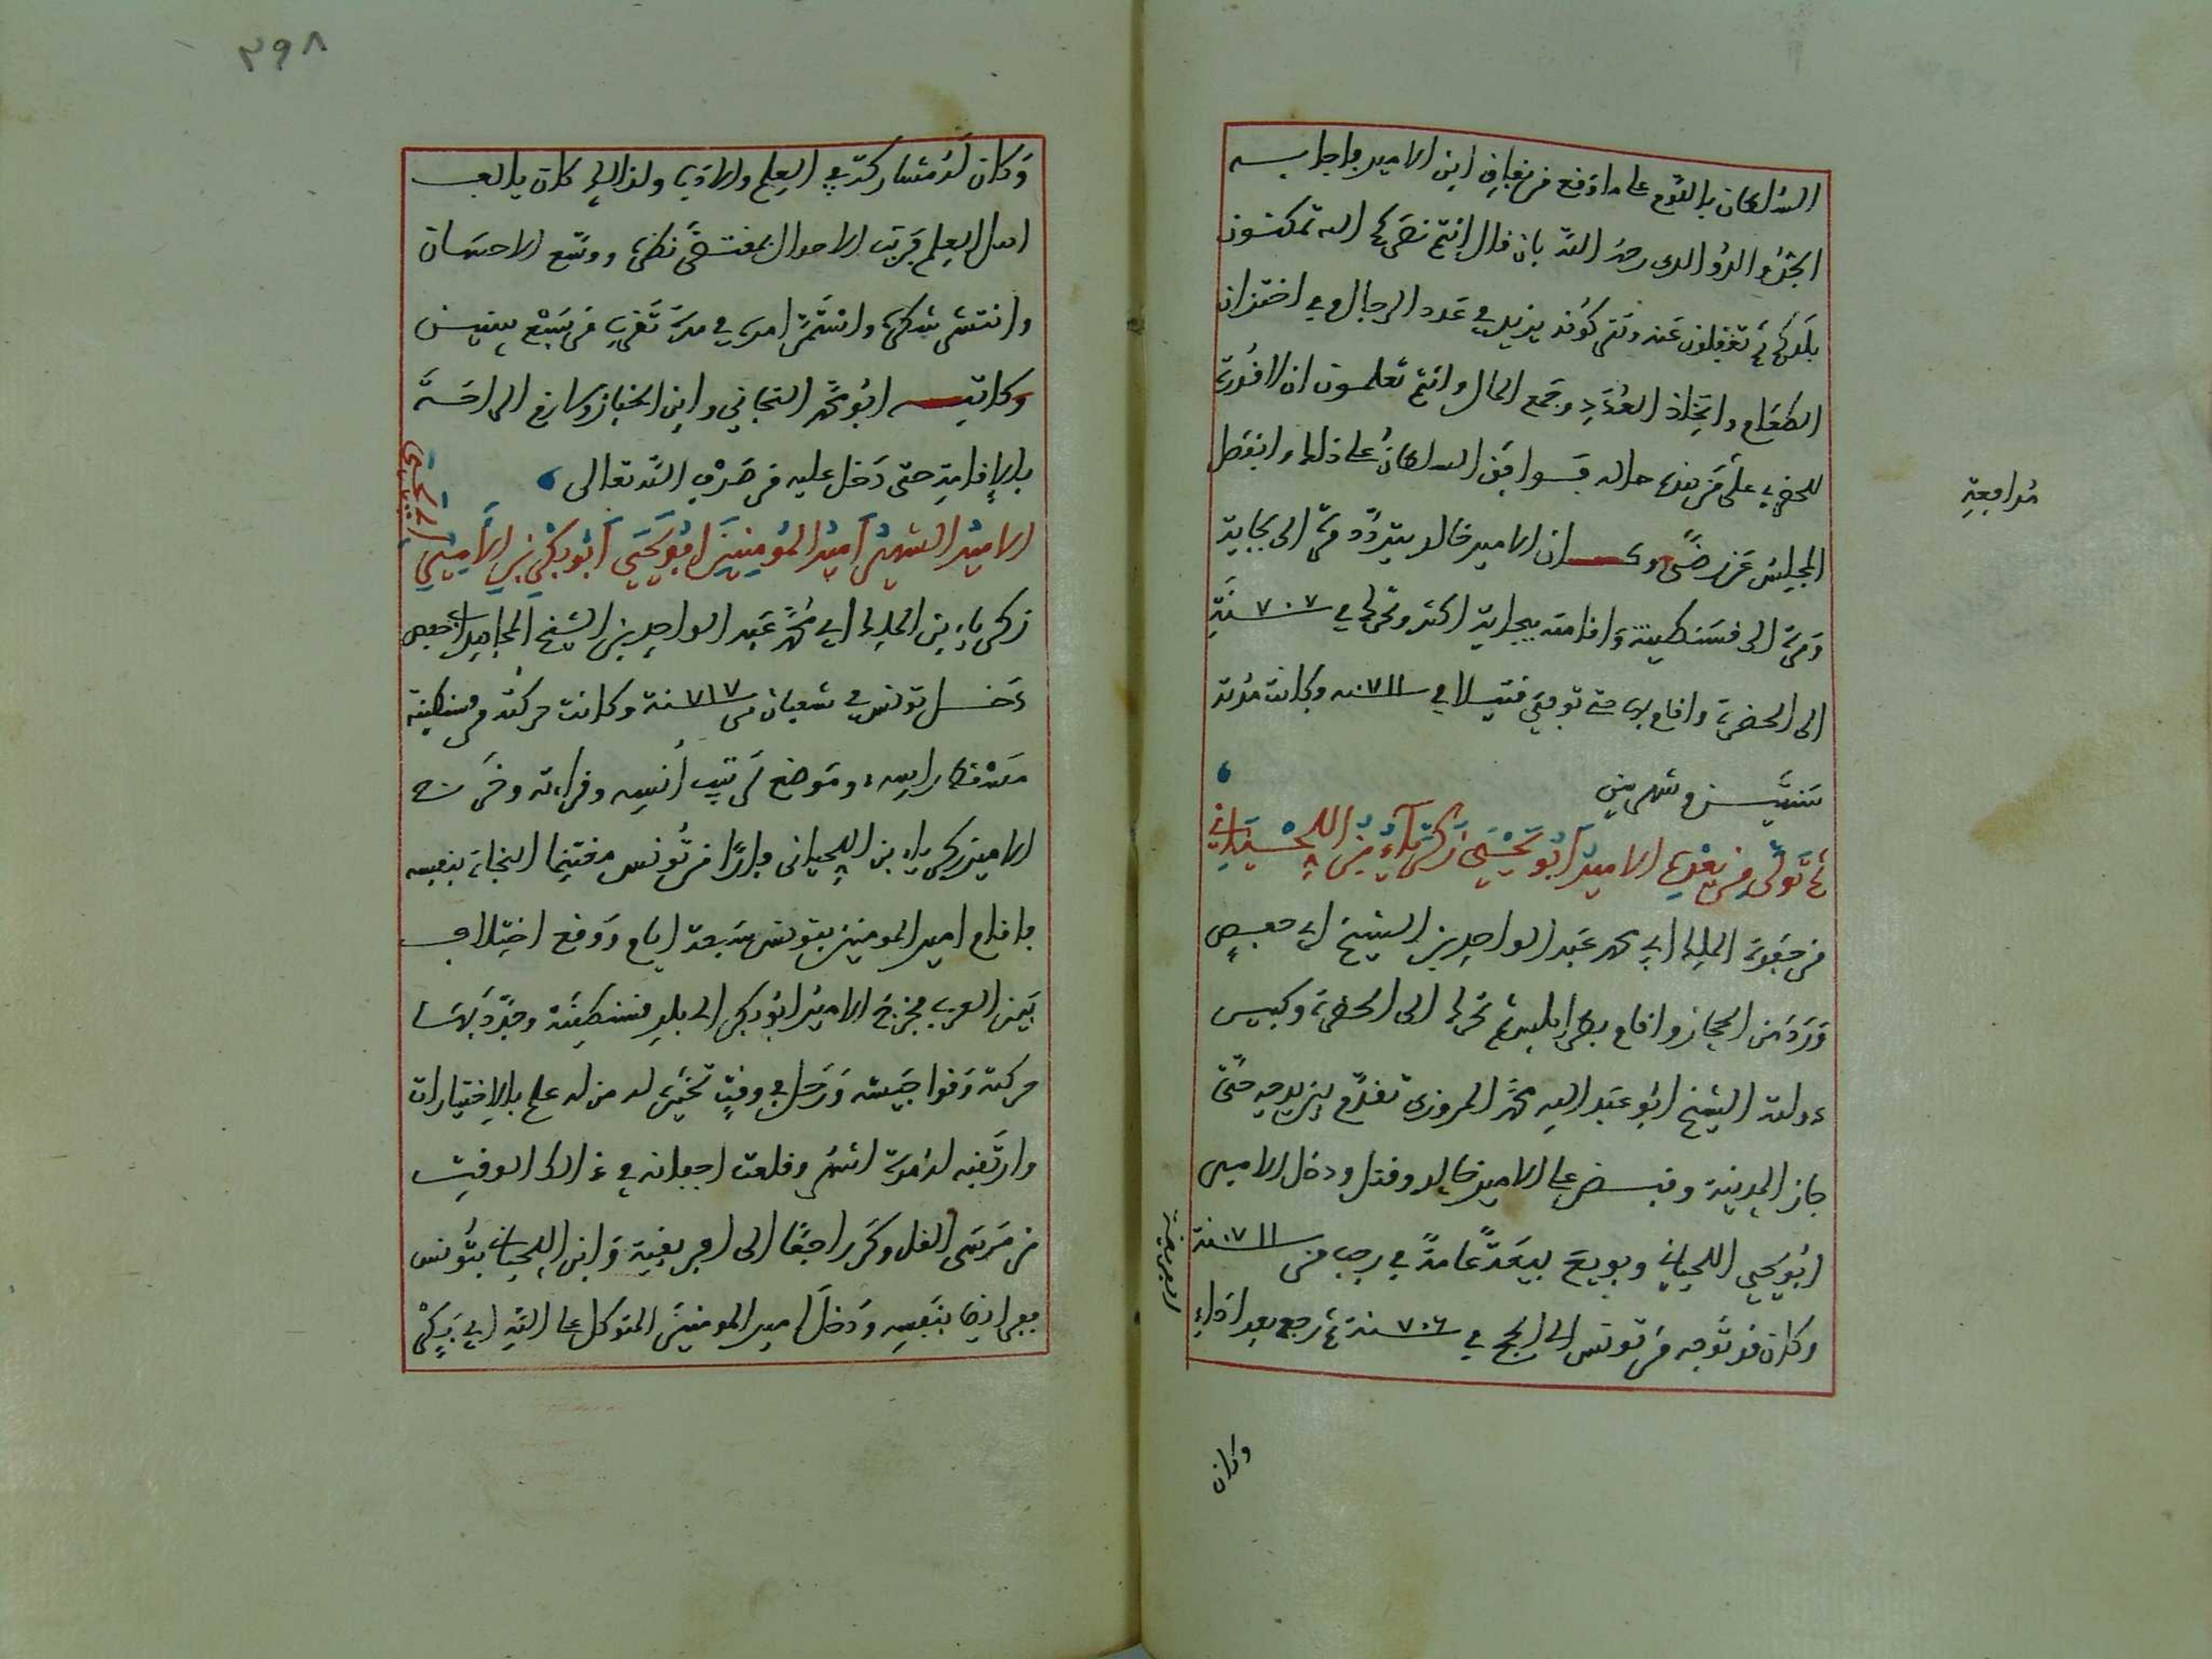 السلطان باللوم على ما وقع من نفاق ابن الامير فاجابه
الجد والدوالدى رحمه الله بان قال انتم نصركم الله تمكنون
بلدكم ثم تغفلون عنه ونتركونه يزيد في عدد الرجال وفي اختزان
الطعام واتخاذ العدد وجمع المال وانتم تعلمون ان لا قدرة
للحضرة على من هذه حاله فسوافق السلطان على ذلك وانفصل
المجلس عن رضى وكان الامير خالد يتردد مرة الى بجاية
ومرة الى قسنطينة واقامته ببجاية اكثر وتحرك في ٧٠٧ سنة
الى الحضرة واقام بها حتى توفي قتيلا في ٧١١ سنه وكانت مدته
سنتين وشهرين
ثم تولى من بعده الامير أبو يحيى زكرياء بن اللحياني
من حفدة الملك ابي محمد عبد الواحد بن الشيخ ابي حفص
ورد من الحجاز واقام بطرابلس ثم تحرك الى الحضرة وكبيس
دولته الشيخ ابو عبد الله محمد المزدورى تقدم بين يديه حتى
جاز المدينة وقبض على الامير خالد وقتل ودخل الامير
ابو يحيى اللحياني وبويع بيعة عامة في رجب من ٧١١ سنة
وكان قد توجه من تونس الى الحج في ٧٠٦ سنة ثم رجع بعد اداء
مدافعة
الفريضة
وكان
٣٩٨
وكان له مشاركة في العلم والادب ولذلك كان يالف
اهل العلم فرتب الاحوال بمقتضى نظره ووسع الاحسان
وانتشر شكره واستمر امره في مدة تقرب من سبع سنين
وكاتبه ابو محمد التجاني وابن الخباز وسارع الى
بالاقامة حتى دخل عليه من صرف الله تعالى
الامير الشهير أمير المؤمنين ابو يحيى أبو بكر بن الأمير ابي يحيى
زكرياء بن الملك ابي محمد عبد الواحد بن الشيخ المجاهد ابي حفص
دخل تونس في شعبان من ٧١٧ سنة وكانت حركته من قسنطينة
مسقط راسه، وموضع ترتيب أنسه وقراءته وخرج
الامير زكرياء بن اللحياني فارا من تونس مغتنما النجاة بنفسه
فاقام امير المومنين بتونس سبعة ايام ووقع اختلاف
بين العرب فخرج الامير ابو بكر الى بلد قسنطينة وجدد بها
حركته وقوا جيشه ورحل في وقت تخيره له من له علم بالاختيارات
وارتقبه له مدة اشهر وقلعت اجفانه في ذلك الوقت
من مرسى القل وكر راجعا الى افريقية وابن اللحياني بتونس
ففر ايضا بنفسه ودخل امير المومنين المتوكل على الله ابي بكر